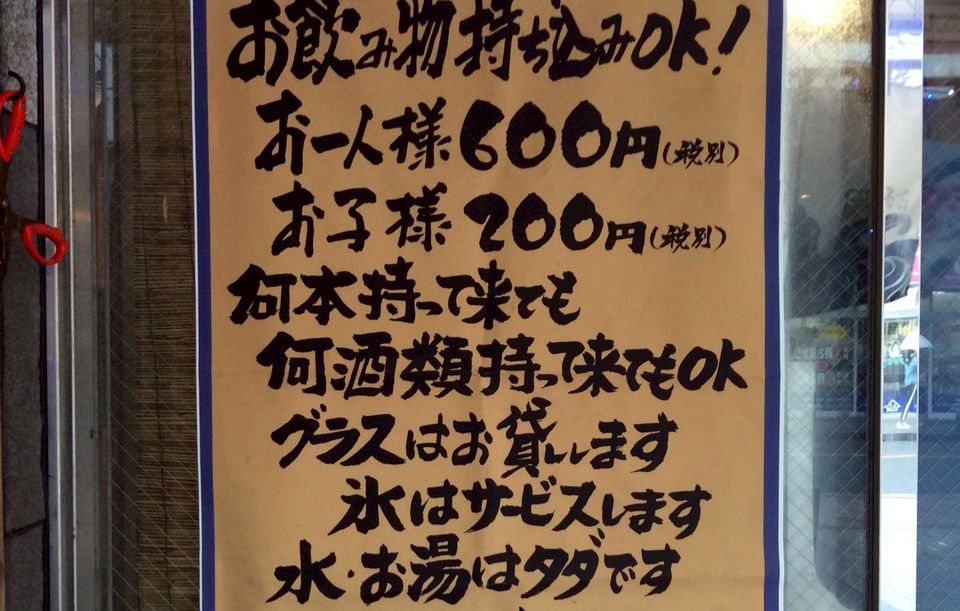 お飲み物持ち込みOK!
お一人様600円(税別)
お子様200円(税別)
何本持って来ても
何酒類持って来てもOK
グラスはお貸しします
氷はサービスします
水・お湯はタダです